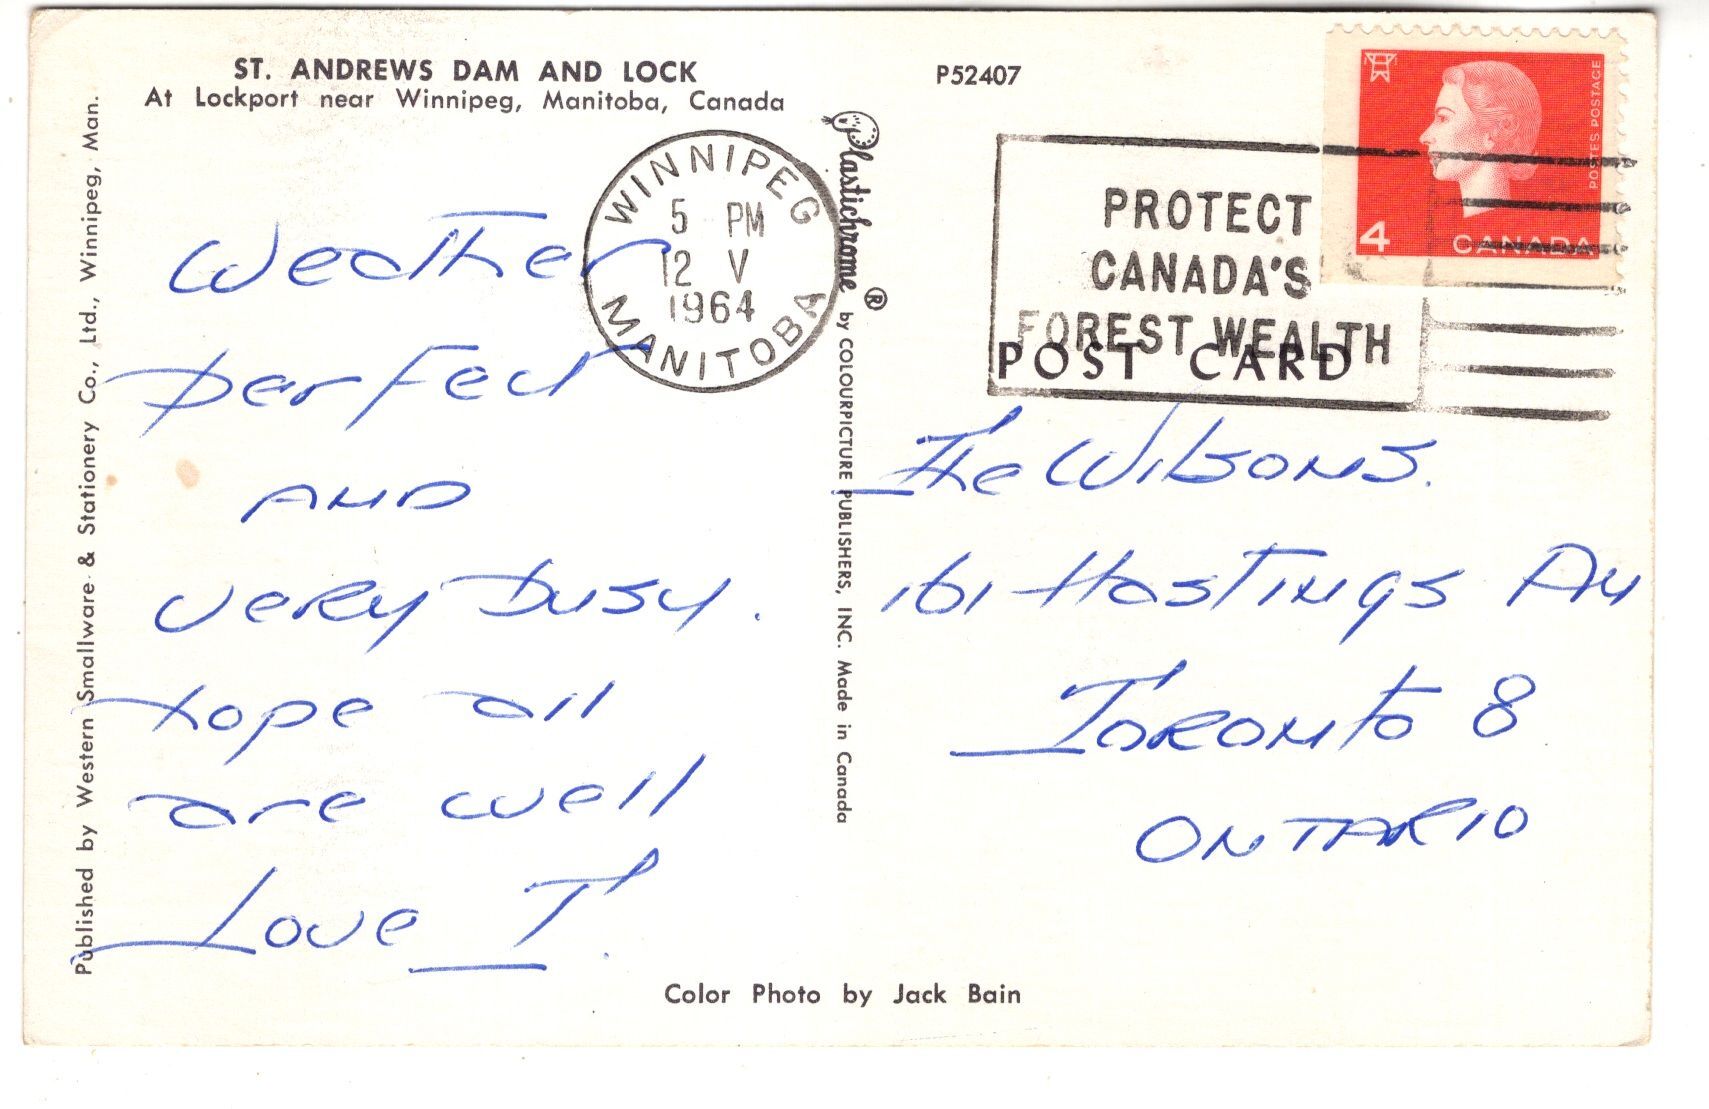 ST. ANDREWS DAM AND LOCK
At Lockport near Winnipeg, Manitoba, Canada
P52407
Published by Western Smallware & Stationery Co., Ltd., Winnipeg, Man.
WINNIPEG
5 PM
12 V
1964
MANITOBA
Plastichrome ® by COLOURPICTURE PUBLISHERS, INC. Made in Canada
PROTECT
CANADA'S
FOREST WEALTH
POSTES POSTAGE
4 CANADA
POST CARD
Weather
perfect
AND
very busy.
hope all
are well
Love I.
The Wilsons.
161 Hastings Av
Toronto 8
ONTARIO
Color Photo by Jack Bain